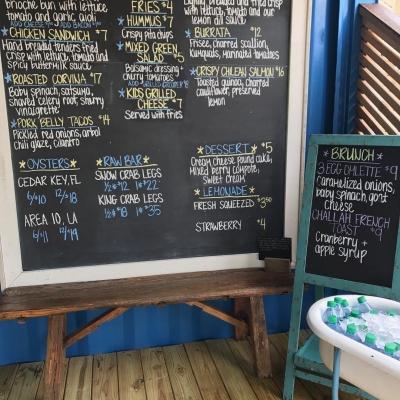 brioche bun with lettuce,
tomato and garlic aioli
CHICKEN SANDWICH $7
Hand breaded tenders fried
crisp with lettuce, tomato and
spicy buttermilk sauce
ROASTED CORVINA $17
Baby spinach, satsuma,
shaved celery root, sherry
vinaigrette
PORK BELLY TACOS $4
Pickled red onions, arbol
chili glaze, cilantro
FRIES $4
HUMMUS $7
Crispy pita chips
MIXED GREEN
SALAD $5
Balsamic dressing
cherry tomatoes
KIDS GRILLED
CHEESE $7
Served with fries
fried crisp
with lettuce, tomato and our
lemon dill sauce
BURRATA $12
Frisee, charred scallion,
Kumquats, marinated tomatoes
CRISPY CHILEAN SALMON $16
Toasted quinoa, charred
cauliflower, preserved
lemon
OYSTERS
CEDAR KEY, FL
6/$10 12/$18
AREA 10, LA
6/$11 12/$19
RAW BAR
SNOW CRAB LEGS
1/2# $12 1# $22
KING CRAB LEGS
1/2# $18 1# $35
DESSERT $5
Cream cheese pound cake,
Mixed berry compote,
Sweet cream
LEMONADE
FRESH SQUEEZED $3.50
STRAWBERRY $4
BRUNCH
3 EGG OMLETTE $9
Caramelized onions,
baby spinach, goat
cheese
CHALLAH FRENCH
TOAST $9
Cranberry +
apple syrup